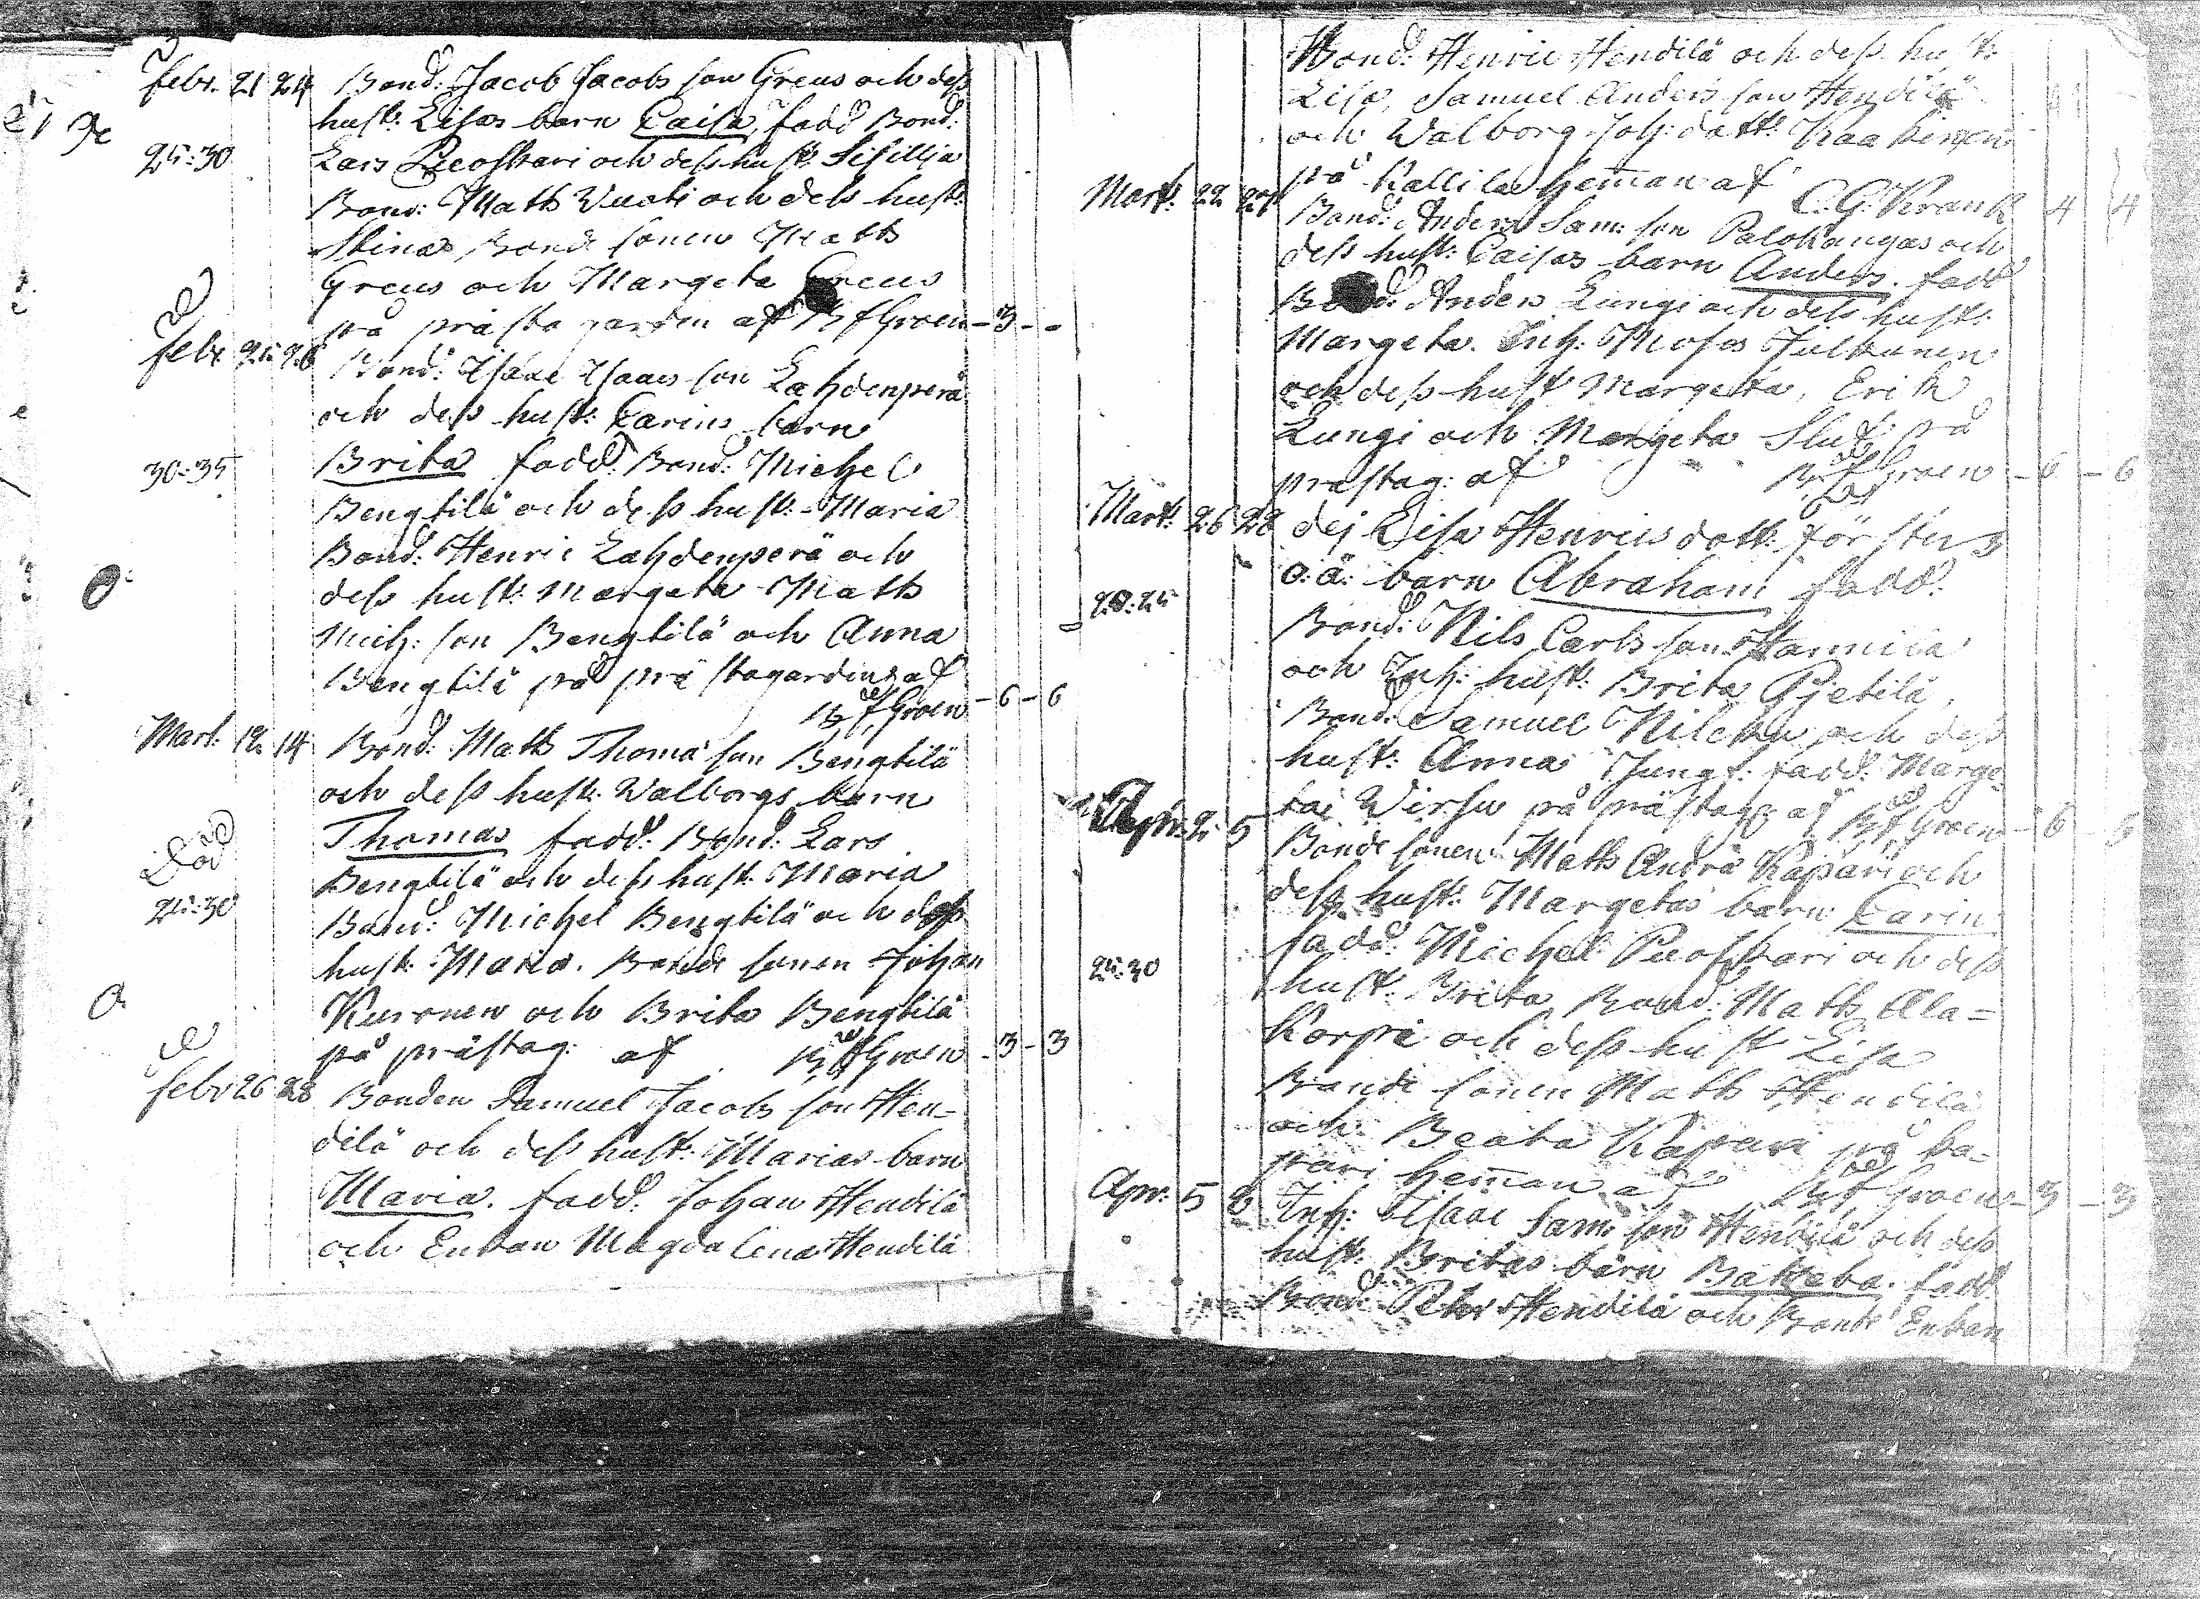 febr. 21 24 Bond: Jacob Jacobs son Greus och dess
hust: Lisas barn Caisa, fadd Bond:
25:30 Lars Puoskari och dess hust: Sisillja
Bond: Matts Wuoti och dess hust:
Stina, Bonde sonen Matts
Greus och Margeta Greus
på prästa garden af Groen - 3 - -
febr 25 26 Bond: Isaac Isaacs son Lahdenperä
och dess hust: Carins barn
30:35 Brita fadd: Bond: Michel
Bengtilä och dess hust: Maria
Bond: Henric Lahdenperä och
dess hust: Margeta Matts
Mich: son Bengtilä och Anna
Bengtilä på prästagarden af
Groen - 6 - 6
Mart: 12 14 Bond: Matts Thoma son Bengtilä
och dess hust: Walborgs barn
Thomas fadd: Bond: Lars
Död Bengtilä och dess hust: Maria
25:30 Bond: Michel Bengtilä och dess
hust: Maria. Bonde sonen Johan
Kuronen och Brita Bengtilä
på prästag: af Groen - 3 - 3
febr 26 28 Bonden Samuel Jacobs son Hen-
dilä och dess hust: Marias barn
Maria. fadd: Johan Hendilä
och Enkan Magdalena Hendilä
Bond: Henric Hendilä och dess hust:
Lisa, Samuel Anders son Hendilä
och Walborg Joh: dott: Kaakinen
på Kallila hem̄an af
C. G. Kranck 4 4
Mart: 22 27 Bond: Anders Sam: son Palokangas och
dess hust: Caisas barn Anders. fadd
Bond: Anders Lungi och dess hust:
Margeta. Inh: Moses Julkunen
och dess hust Margeta, Erik
Lungi och Margeta på
prästag: af Groen - 6 - 6
Mart: 26 28 Lisa Henrics dott:
o: ä: barn Abraham fadd:
20:25 Bond: Nils Carls son Hannila
och Inh: hust: Brita Pjetilä,
Bond: Samuel och dess
hust: Anna Jungf: fadd: Marge
ta Wirsu på prästag: af Groen - 6 - 6
Apr: 2 5 Bonde sonen Matts Andrä Kapari och
dess hust: Margetas barn Carin
fadd: Michel Puoskari och dess
25:30 hust: Brita, Bond: Matts Ala=
Korpi och dess hust Lisa
Bonde sonen Matts Hendilä
och Beata Kapari på ka-
pari hem̄an af Groen - 3 - 3
Apr: 5 8 Inh: Isaac Sam: son Hendilä och dess
hust: Britas barn Batzeba. fadd
Bond: Petter Hendilä och Enkan